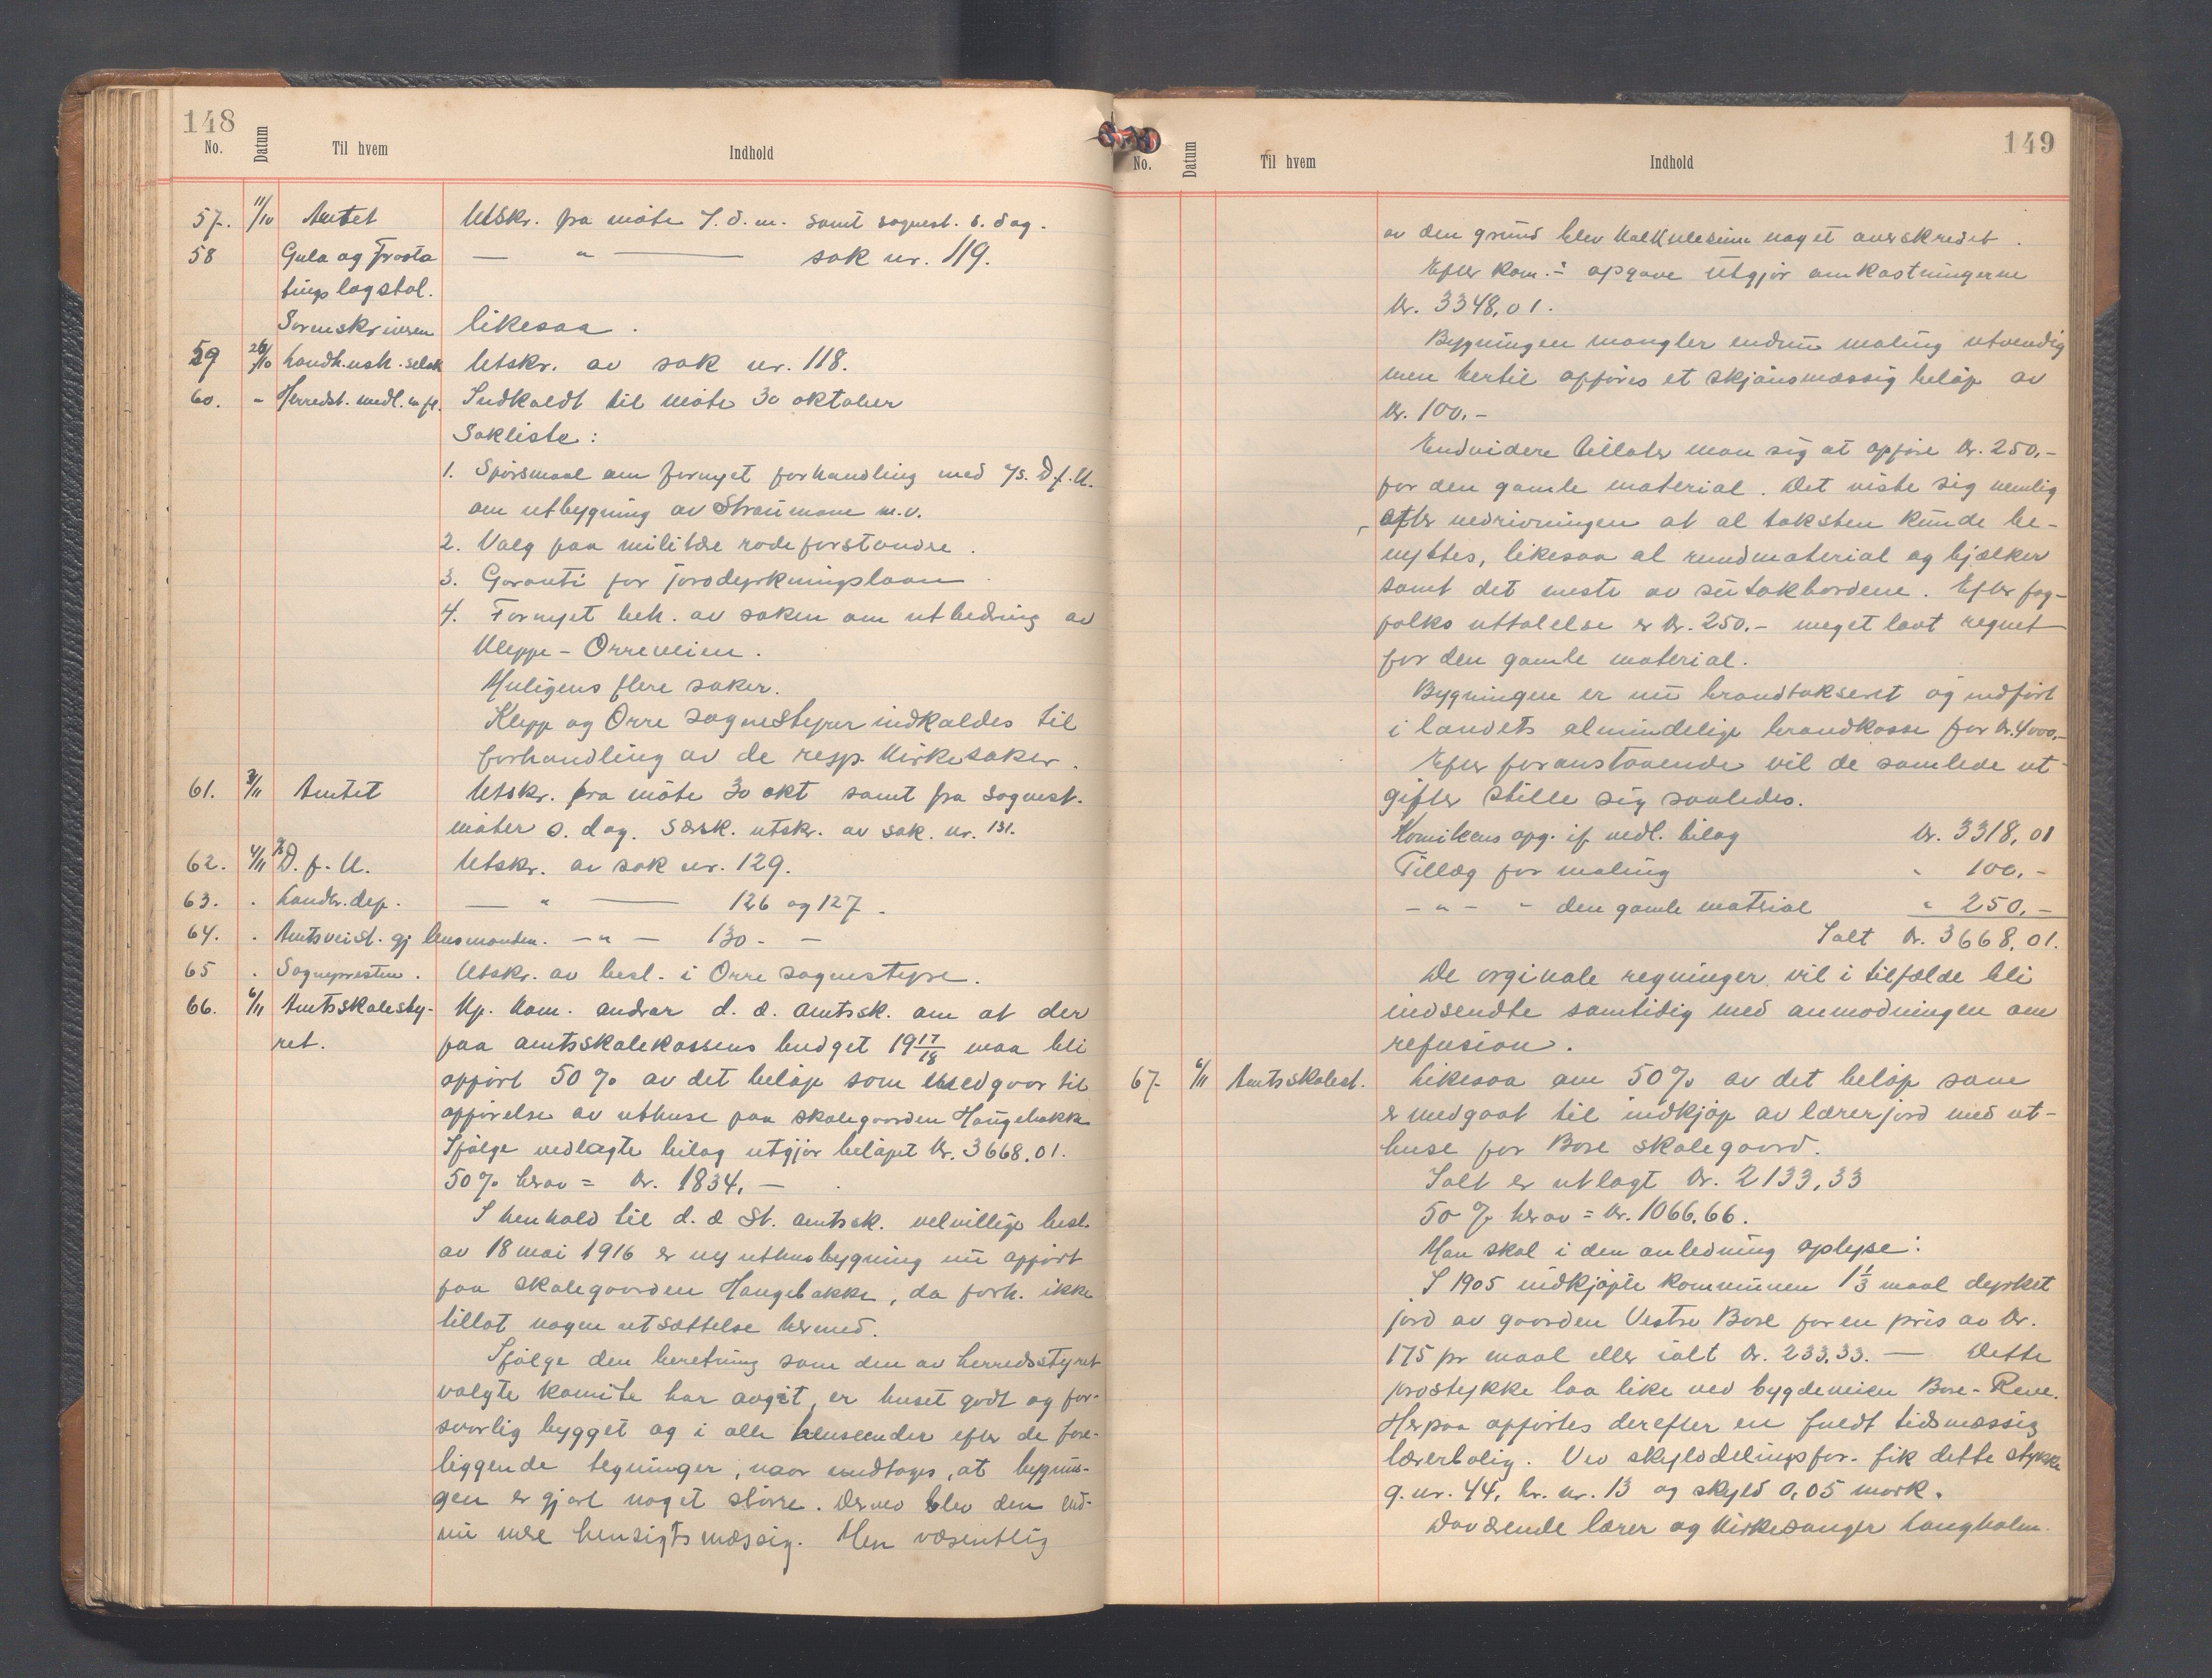 148
No. Datum Til hvem Indhold
57. 11/10 Amtet Utskr. fra møte 7. d. m. samt sognest. s. dag.
58 Gula og Frosta — " — sak nr. 119.
tings lagstol.
Sorenskriveren likesaa.
59 26/10 Landh.ush. selsk Utskr. av sak nr. 118.
60. " Herredst. medl. m fl. Indkaldt til møte 30 oktober
Sakliste:
1. Spørsmaal om fornyet forhandling med A/s. D. f. U.
om utbygning av Straumane m.v.
2. Valg paa militære rodeforstandre.
3. Garanti for jorddyrkningslaan
4. Fornyet beh. av saken om utbedring av
Kleppe - Orreveien.
Muligens flere saker.
Klepp og Orre sognestyrer indkaldes til
forhandling av de resp. kirkesaker.
61. 3/11 Amtet Utskr. fra møte 30 okt samt fra sognest.
møter s. dag. Særsk. utskr. av sak. nr. 131.
62. 4/11 A/s D. f. U. Utskr. av sak nr. 129.
63. . Landbr. dep. — " — 126 og 127.
64. . Amtsveist. gj lensmanden. — " — 130. —
65 . Sognepresten. Utskr. av besl. i Orre sognestyre.
66. 6/11 Amtsskolesty- Kp. kom. andrar d. æ. amtssk. om at der
ret. paa amtsskolekassens budget 19 17/18 maa bli
opført 50 % av det beløp som medgaar til
opførelse av uthuse paa skolegaarden Haugebakke
Ifølge vedlagte bilag utgjør beløpet kr. 3668.01.
50 % herav = kr. 1834. —
I henhold til d. æ St. amtssk. velvillige besl.
av 18 mai 1916 er ny uthusbygning nu opført
paa skolegaarden Haugebakke, da forh. ikke
tillot nogen utsættelse hermed.
Ifølge den beretning som den av herredsstyret
valgte komite har avgit, er huset godt og for-
svarlig bygget og i alle henseender efter de fore-
liggende tegninger, naar undtages, at bygnin-
gen er gjort noget større. Derved blev den end-
nu mere hensigtsmæssig. Men væsentlig
149
No. Datum Til hvem Indhold
av den grund blev kalkulesum noget overskredet.
Efter kom.: opgave utgjør omkostningerne
kr. 3348,01.
Bygningen mangler endnu maling utvendig
men hertil opføres et skjønsmæssig beløp av
kr. 100.-
Endvidere tillater man sig at opføre kr. 250.-
for den gamle material. Det viste sig nemlig
efter nedrivningen at al taksten kunde be-
nyttes, likesaa al rundmaterial og bjælker
samt det meste av sutakbordene. Efter fag-
folks uttalelse er kr. 250.- meget lavt regnet
for den gamle material.
Bygningen er nu brandtakseret og indført
i landets almindelige brandkasse for kr. 4000.-
Efter foranstaaende vil de samlede ut
gifter stille sig saaledes.
Komiteens opg. if vedl. bilag kr. 3318,01
Tillæg for maling " 100.-
- " - " den gamle matrial " 250.-
Ialt kr. 3668.01.
De orginale regninger vil i tilfælde bli
indsendte samtidig med anmodningen om
refusion.
67 6/11 Amtsskolest. Likesaa om 50 % av det beløp som
er medgaat til indkjøp av lærerjord med ut-
huse for Bore skolegaard.
Ialt er utlagt kr. 2133,33
50 % herav = kr. 1066.66.
Man skal i den anledning oplyse:
I 1905 indkjøpte kommunen 1 1/3 maal dyrket
jord av gaarden Vestre Bore for en pris av kr.
175 pr maal eller ialt kr. 233.33. — Dette
jordstykke laa like ved bygdeveien Bore - Reve.
Herpaa opførtes derefter en fuldt tidsmæssig
lærerbolig. Ved skylddelingsfor. fik dette stykke
g. nr. 44, br. nr. 13 og skyld 0,05 mark.
Daværende lærer og kirkesanger Langholm